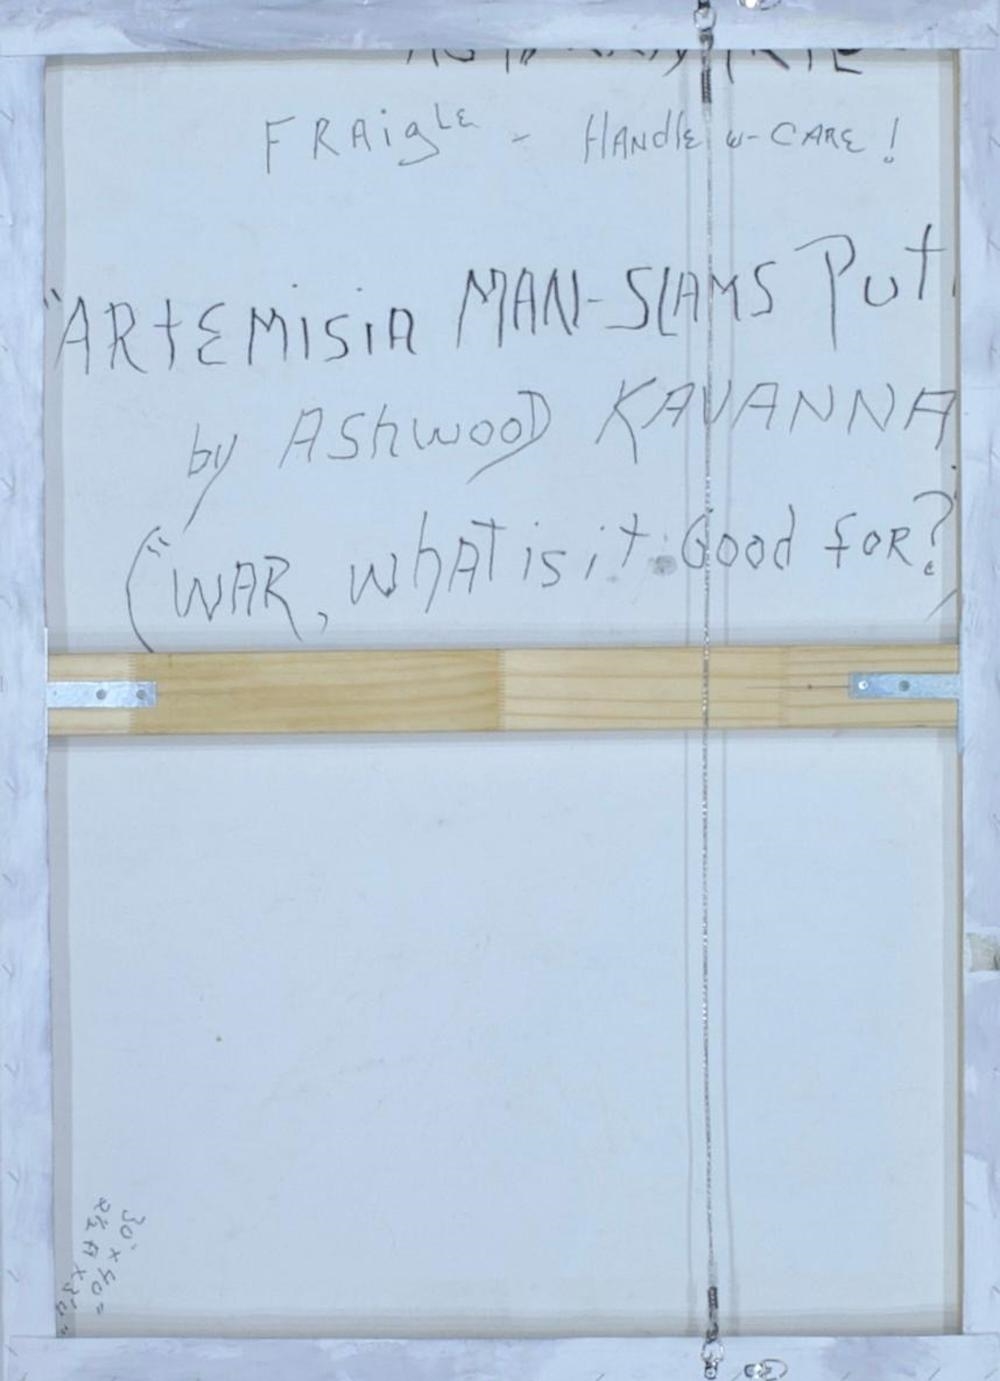 FRAigLE - HANdlE w-CARE!
"ARtEMiSiA MAN-SLAMS Put
by AShWOOD KAVANNA
("WAR, whAT is it Good foR?
30" x 40"